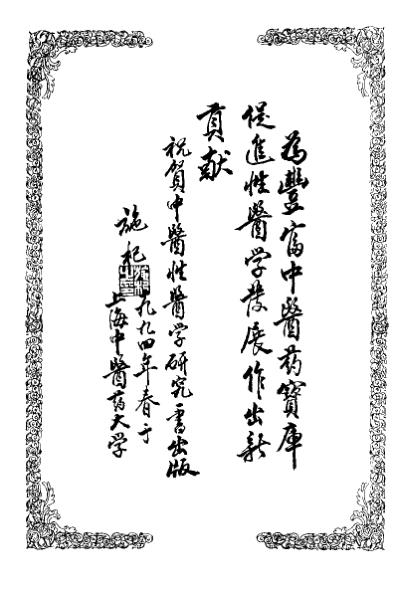 為豐富中醫药寶庫
促進性醫学發展作出新
貢献
祝賀中醫性醫学研究書出版
施杞
一九九四年春于
上海中醫药大学